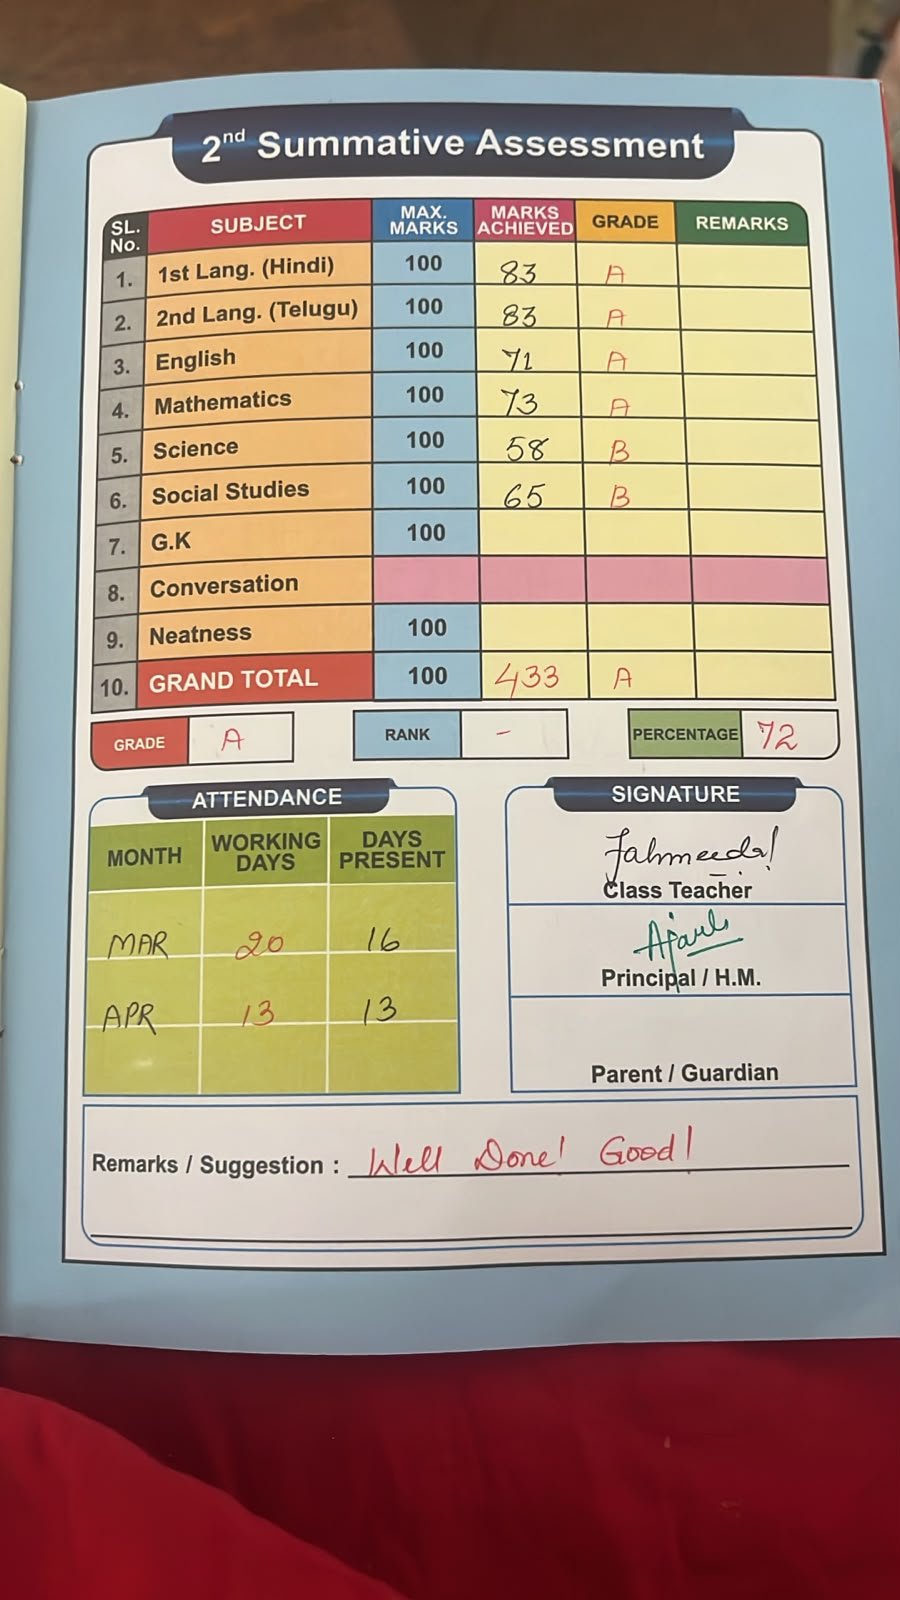 2nd Summative Assessment
SL. No. SUBJECT MAX. MARKS MARKS ACHIEVED GRADE REMARKS
1. 1st Lang. (Hindi) 100 83 A
2. 2nd Lang. (Telugu) 100 83 A
3. English 100 71 A
4. Mathematics 100 73 A
5. Science 100 58 B
6. Social Studies 100 65 B
7. G.K 100
8. Conversation
9. Neatness 100
10. GRAND TOTAL 100 433 A
GRADE A RANK - PERCENTAGE 72
ATTENDANCE
MONTH WORKING DAYS DAYS PRESENT
MAR 20 16
APR 13 13
SIGNATURE
Fahmeeda!
Class Teacher
Principal / H.M.
Parent / Guardian
Remarks / Suggestion : Well Done! Good!